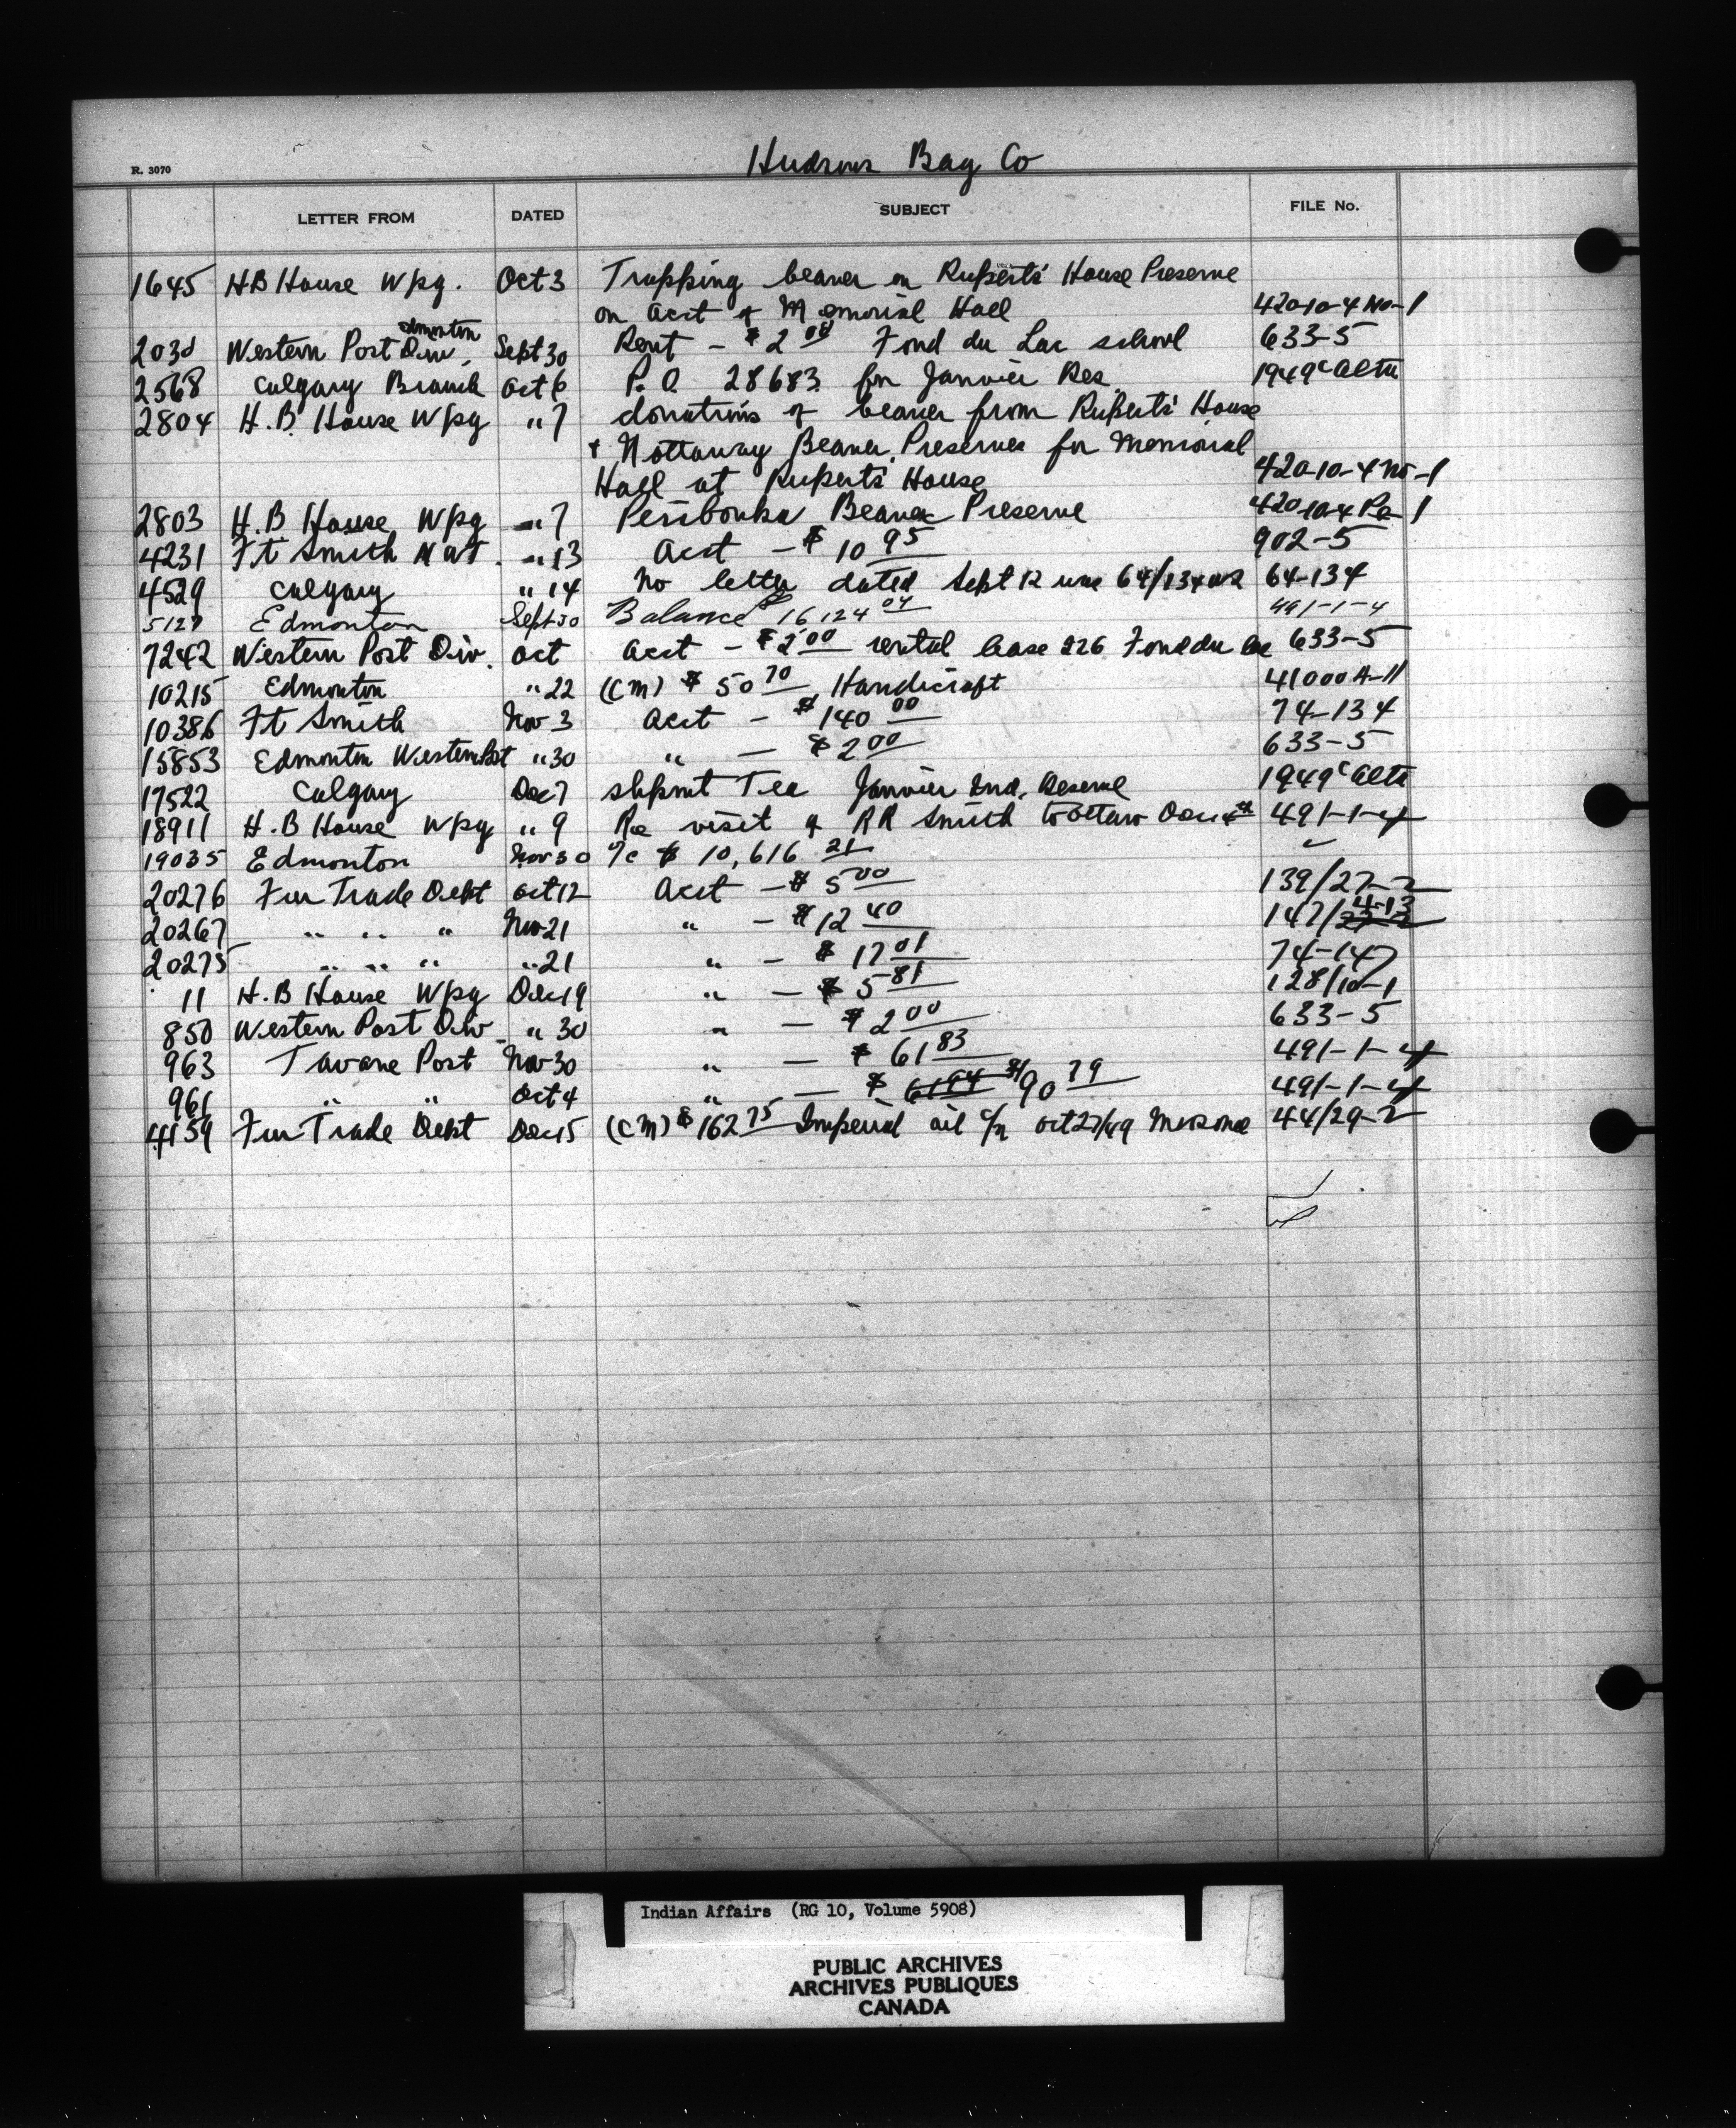 Hudsons Bay Co
R. 3070
LETTER FROM DATED SUBJECT FILE No.
1645 H B House Wpg. Oct 3 Trapping beaver on Ruperts' House Preserve
on acct of Memorial Hall 420-10-4 No-1
2030 Western Post Div, Edmonton Sept 30 Rent - $2 00 Fond du Lac school 633-5
2568 Calgary Branch Oct 6 P.O. 28683 for Janvier Res. 1949 c Alta
2804 H.B. House Wpg " 7 donations of beaver from Ruperts' House
+ Nottaway Beaver Preserves for Memorial
Hall at Ruperts' House 420-10-4 No-1
2803 H.B House Wpg " 7 Peribonka Beaver Preserve 420-10-4 Pe-1
4231 Ft Smith N WT. " 13 Acct - $10 95 902-5
4529 Calgary " 14 No letter dated Sept 12 64/134 64-134
5127 Edmonton Sept 30 Balance $16124 04 491-1-4
7242 Western Post Div. Oct Acct - $2 00 rental lease 226 Fond du Lac 633-5
10215 Edmonton " 22 (CM) $50 70 Handicraft 41000 A-11
10386 Ft Smith Nov 3 Acct - $140 00 74-134
15853 Edmonton Western Post " 30 " - $2 00 633-5
17522 Calgary Dec 7 shpmt Tea Janvier Ind. Reserve 1949 c Alta
18911 H.B House Wpg " 9 Re visit of RR Smith to Ottaw Dec 491-1-4
19035 Edmonton Nov 30 $10,616 21 "
20276 Fur Trade Dept Oct 12 Acct - $5 00 139/27-2
20267 " " " Nov 21 " - $12 40 147/23-2 4-13
20275 " " " " 21 " - $17 01 74-147
11 H.B House Wpg Dec 19 " - $5 81 128/10-1
850 Western Post Div " 30 " - $2 00 633-5
963 Tavane Post Nov 30 " - $61 83 491-1-4
961 " " Oct 4 " - $6194 90 79 491-1-4
4159 Fur Trade Dept Dec 15 (CM) $162 75 Imperial oil Oct 27/49 Moosonee 44/29-2
Indian Affairs (RG 10, Volume 5908)
PUBLIC ARCHIVES
ARCHIVES PUBLIQUES
CANADA